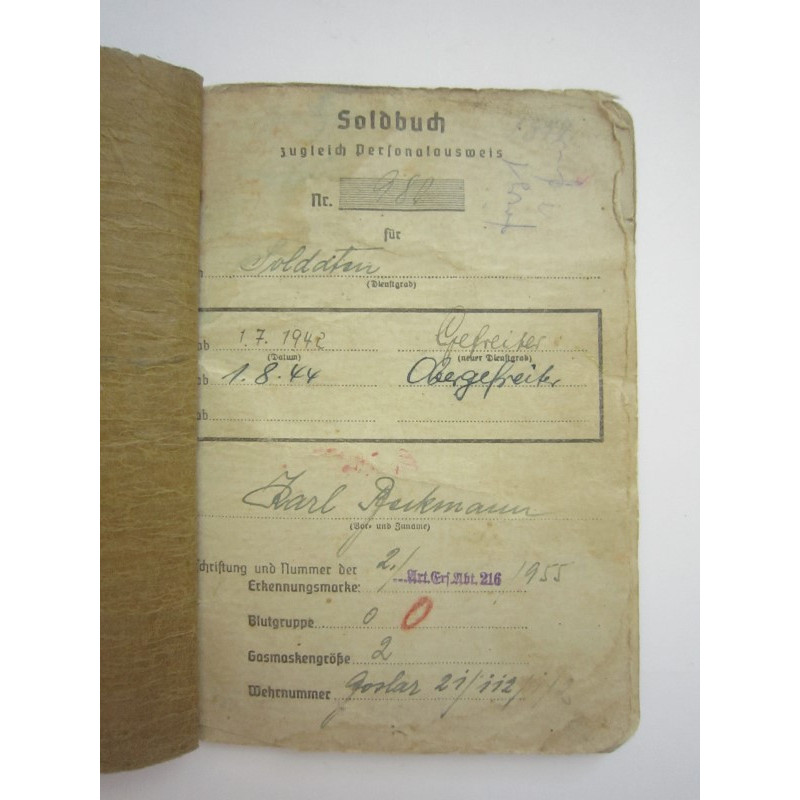 Soldbuch
zugleich Personalausweis
Nr. 982
für
Soldaten
(Dienstgrad)
ab 1.7.1942 Gefreiter
(Datum) (neuer Dienstgrad)
ab 1.8.44 Obergefreiter
ab
Karl
(Vor- und Zuname)
schriftung und Nummer der
Erkennungsmarke: 2./ Art.Ers.Abt. 216 1955
Blutgruppe O O
Gasmaskengröße 2
Wehrnummer Goslar